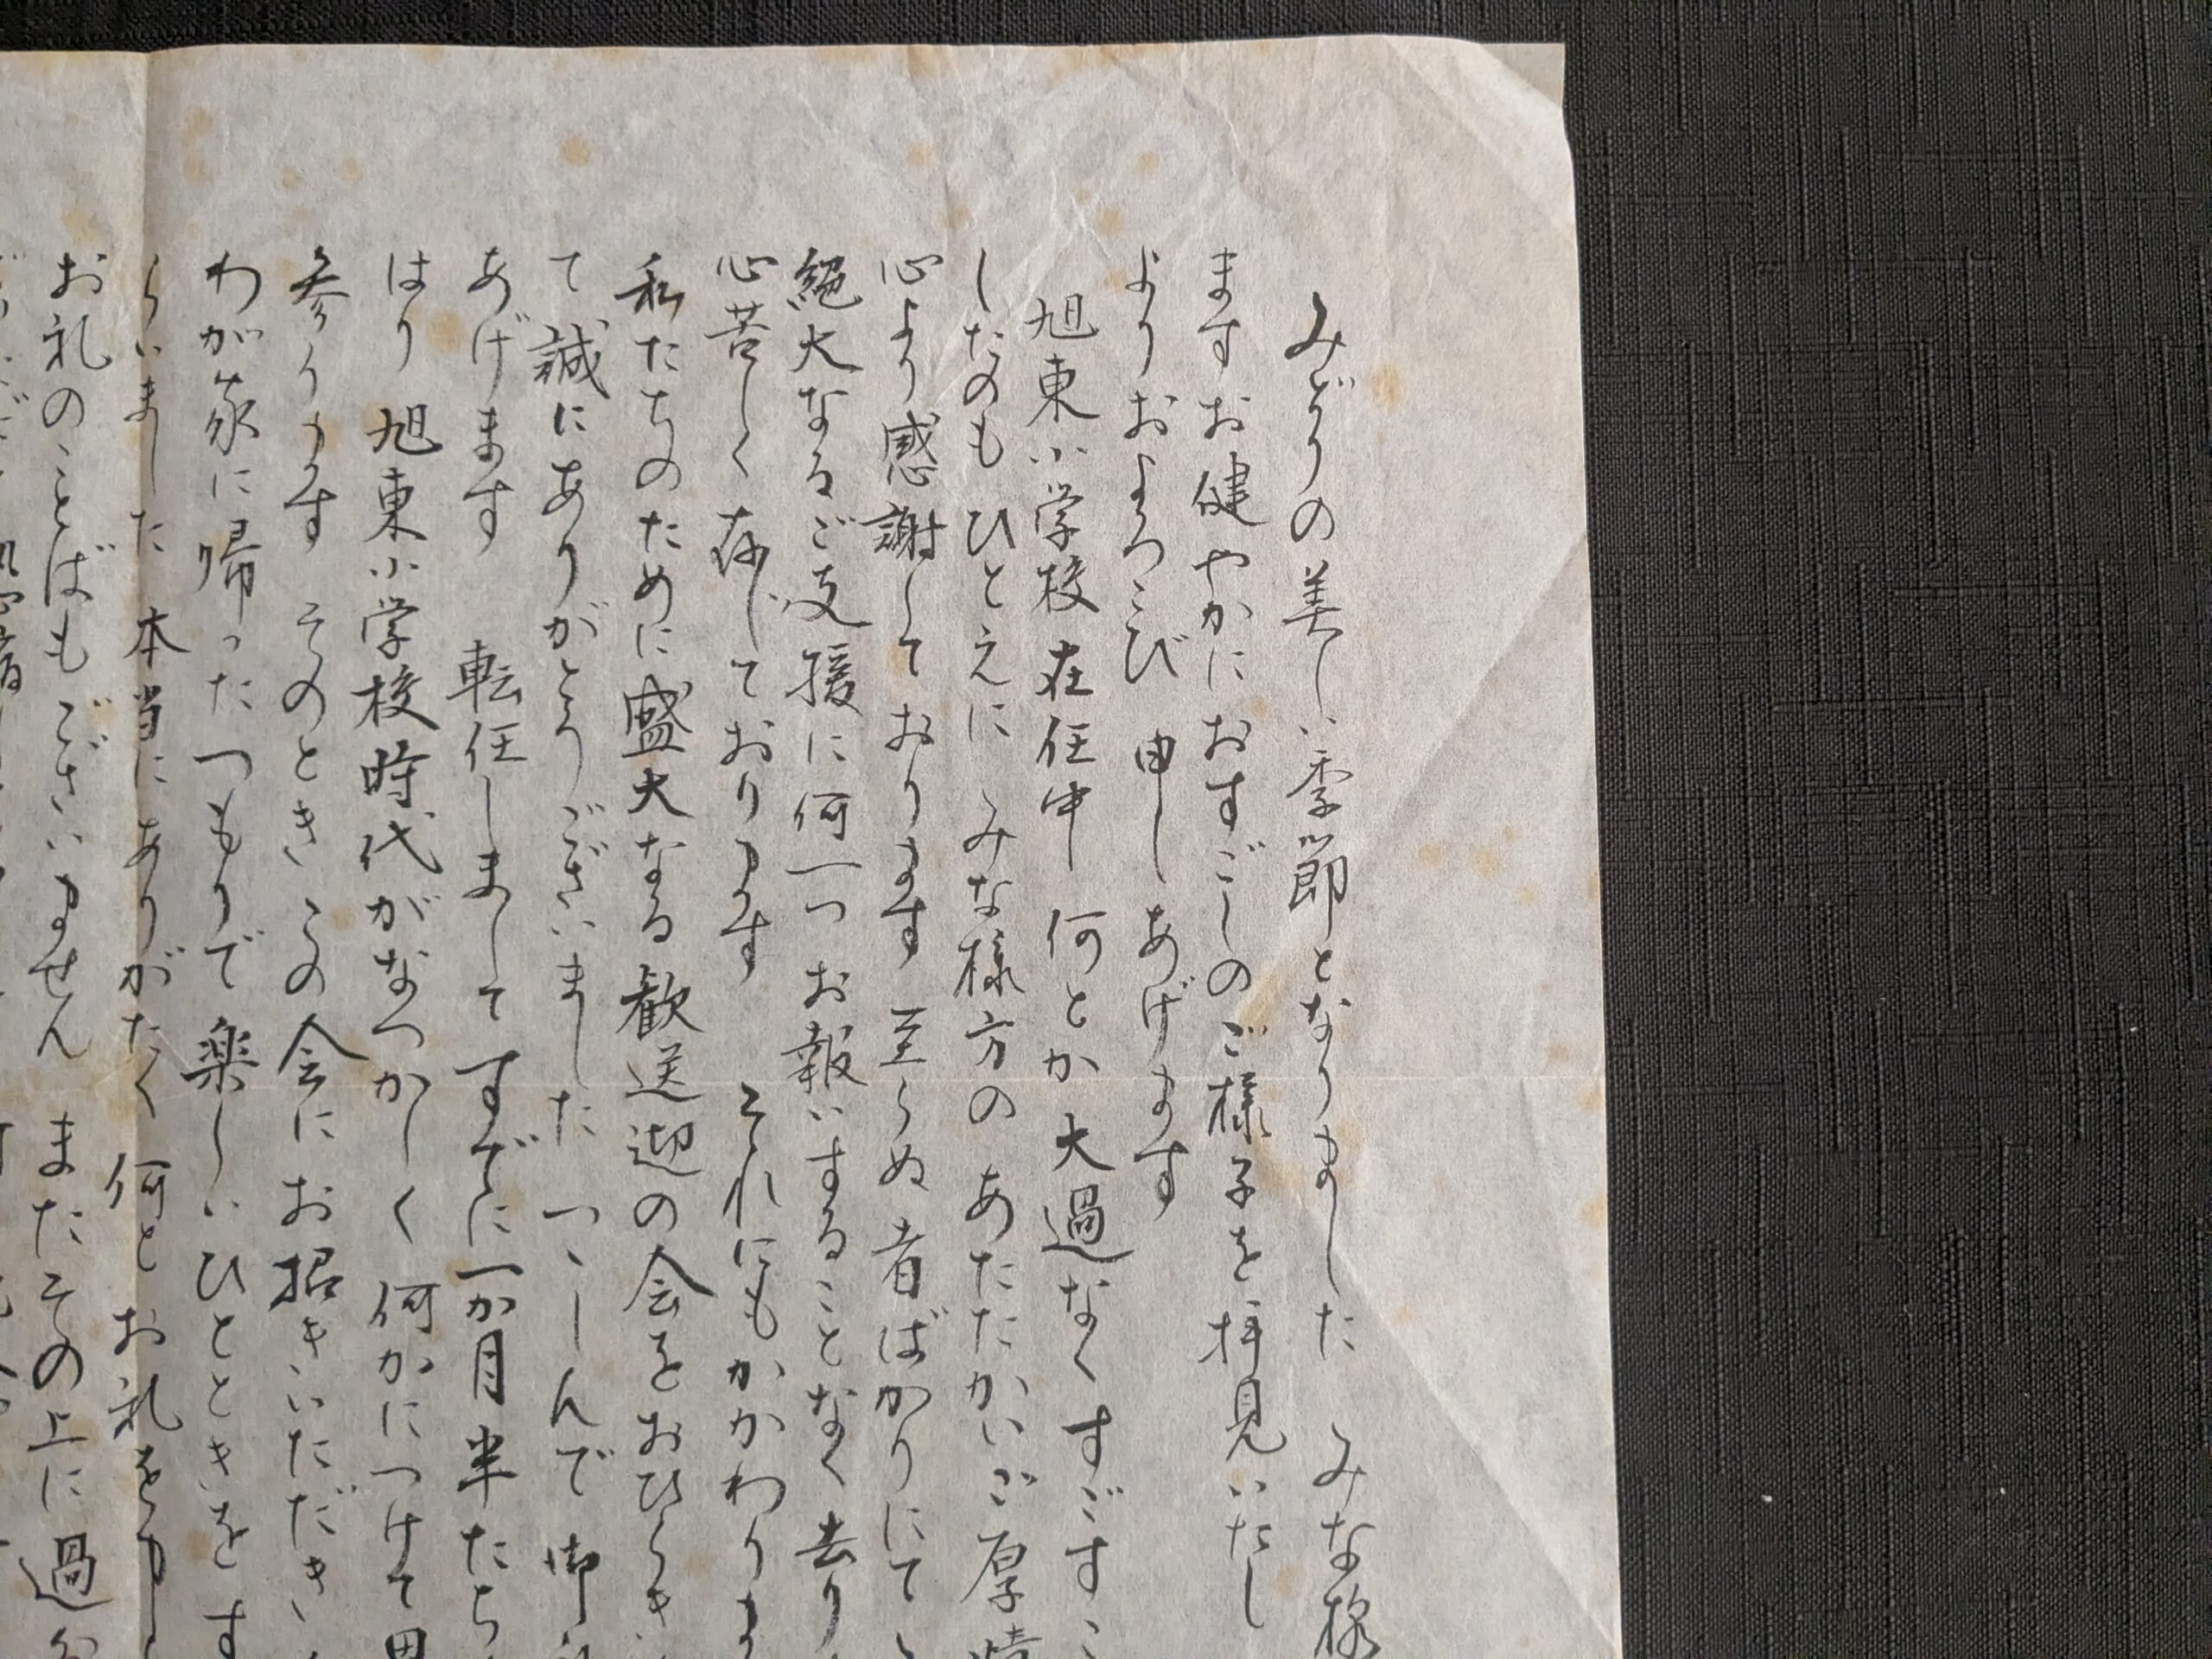 みどりの美しい季節となりました みな様
ますお健やかにおすごしのご様子を拝見いたし
よりおよろこび申しあげます
旭東小学校在任中 何とか大過なくすごすこ
したのもひとえに みな様方の あたたかいご厚情
心より感謝しております 至らぬ者ばかりにて
絶大なるご支援に何一つお報いすることなく去り
心苦しく存じております それにもかかわりま
私たちのために盛大なる歓送迎の会をおひらき
て誠にありがとうございました つゝしんで御礼
あげます 転任しまして すでに一か月半たち
はり 旭東小学校時代がなつかしく 何かにつけて思
参ります そのとき この会にお招きいただき
わが家に帰ったつもりで楽しいひとときをす
らいました 本当にありがたく何とお礼を申し
お礼のことばもございません またその上に過分